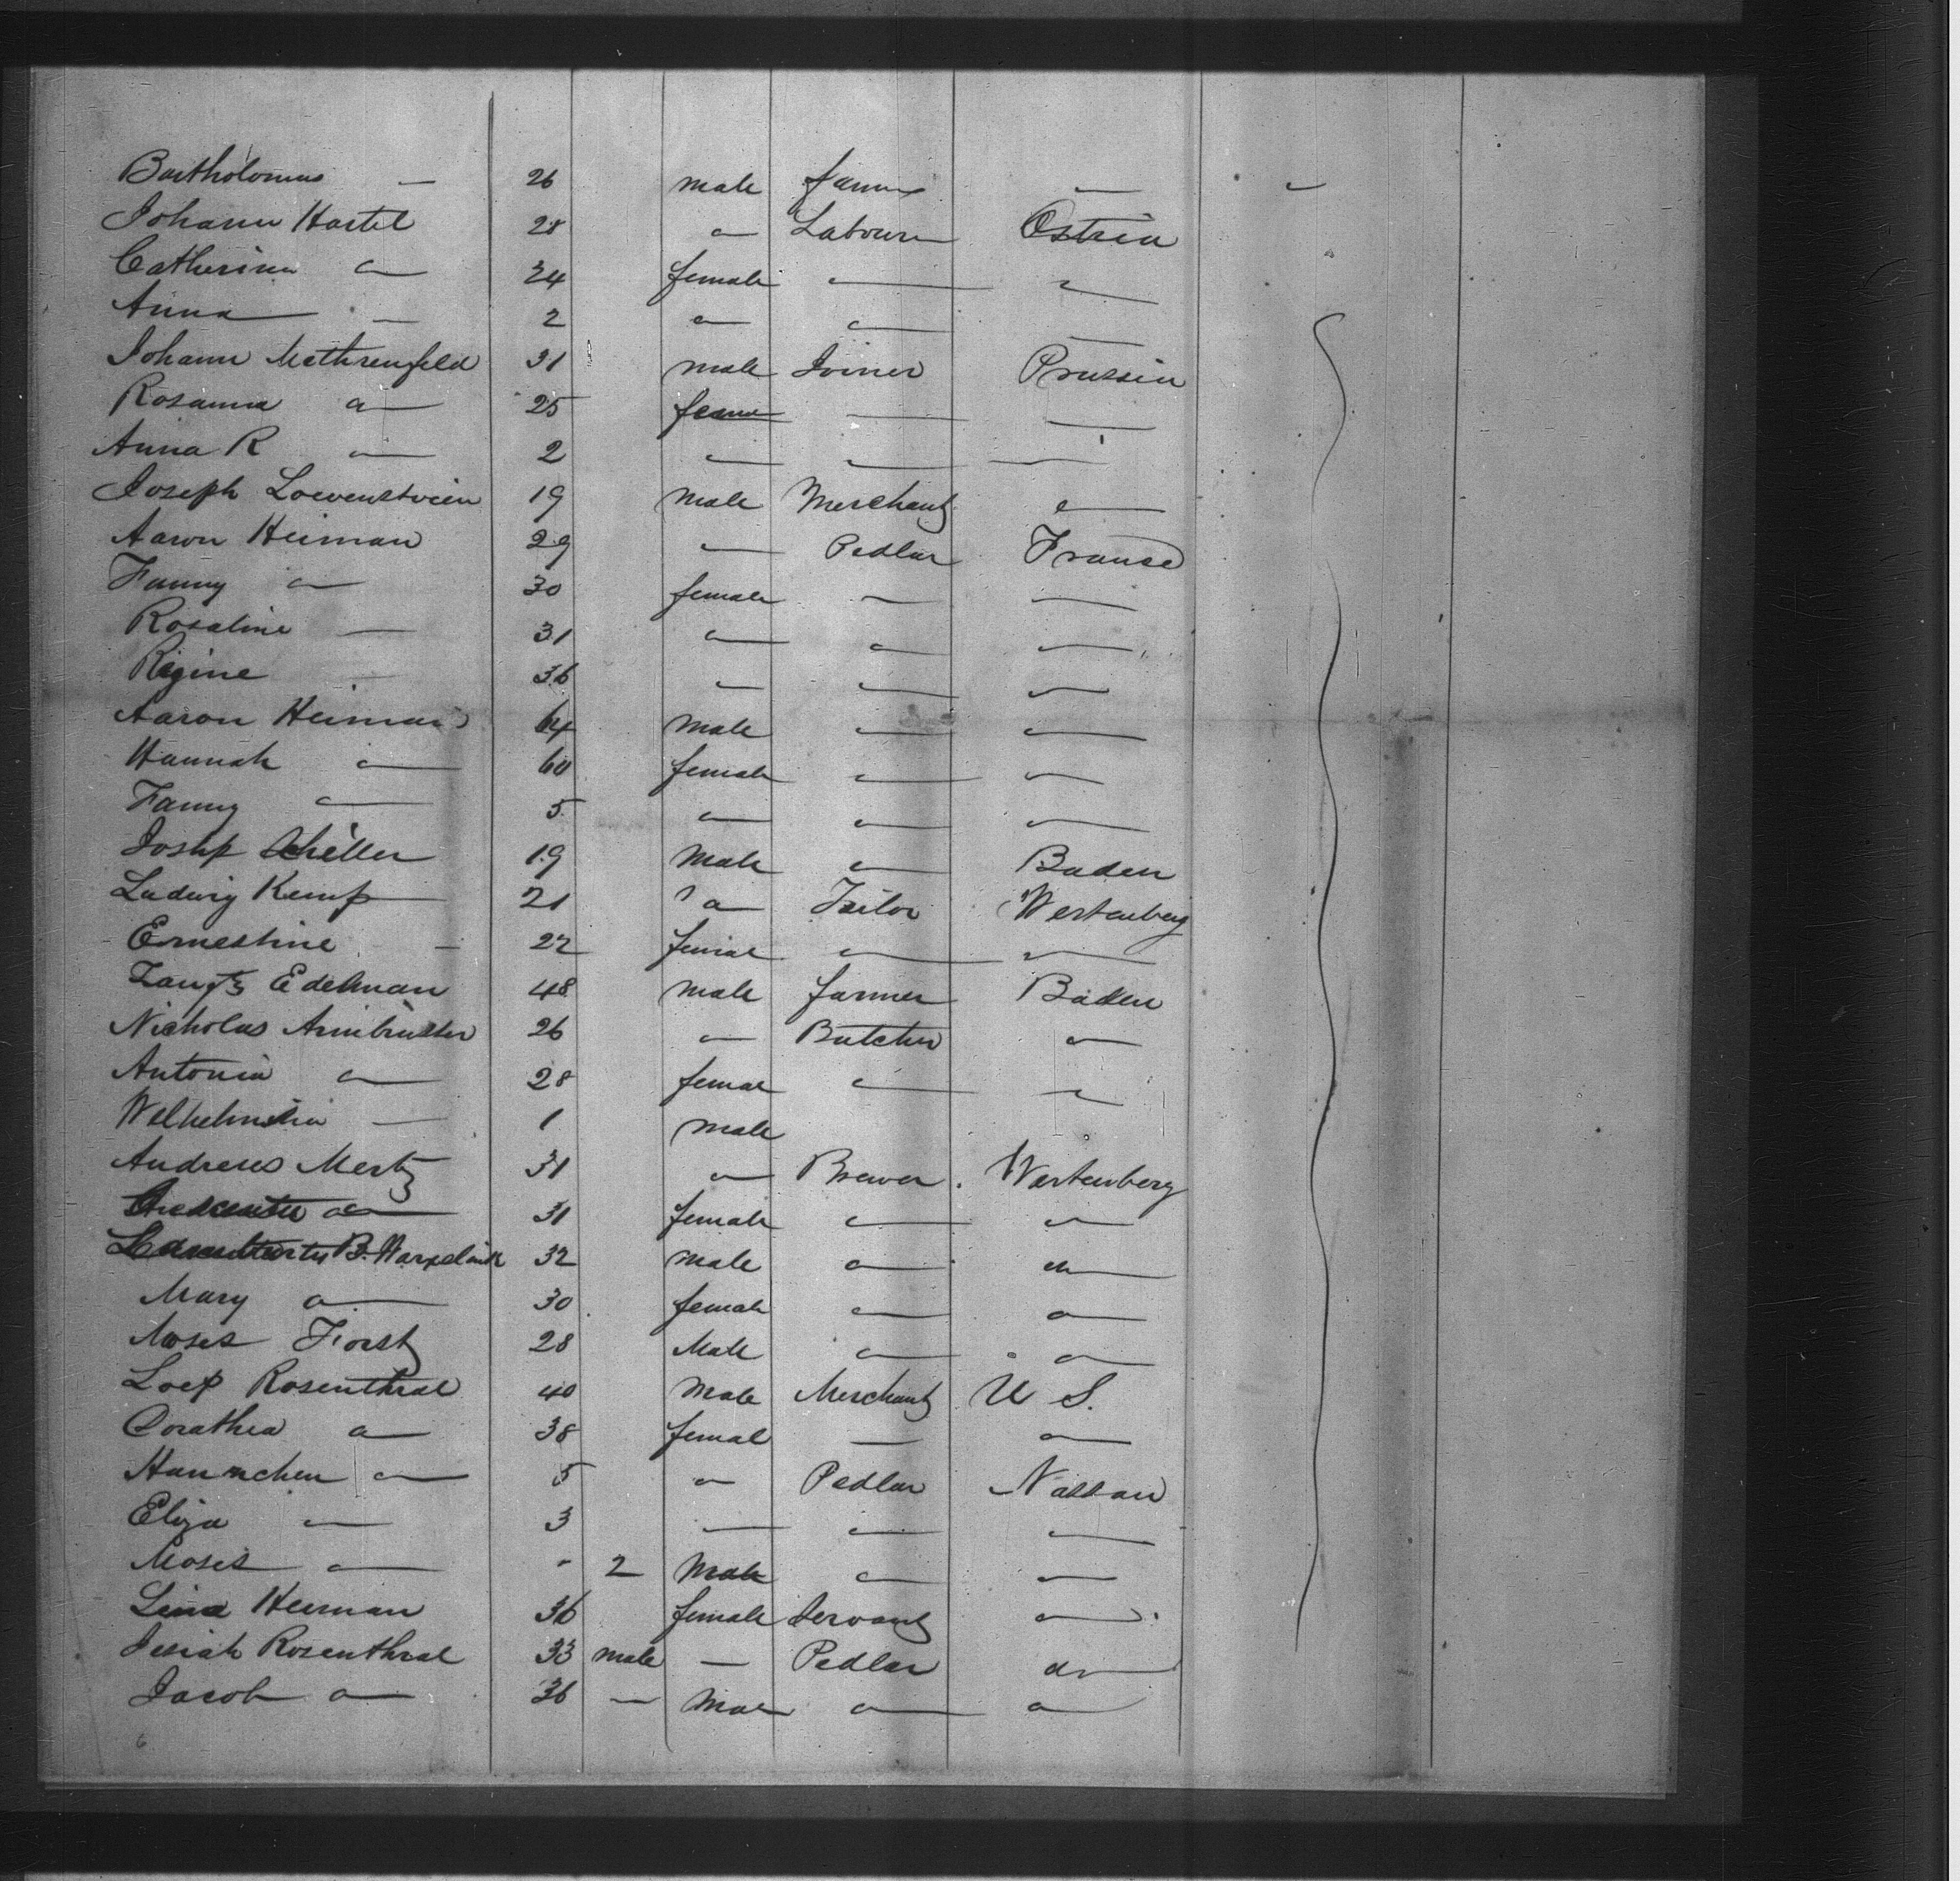 Bartholomus — 26 male farmer — —
Johann Hartel 28 " Labourer Ostria
Catherina " 24 female — "
Anna — 2 " " —
Johann Methrenfeld 31 male Joiner Prussia
Rosanna " 25 — —
Anna R — 2 — — —
Joseph Loevenstein 19 male Merchant "
Aaron Heiman 29 — Pedlar Franse
Fanny " 30 female — —
Rosaline — 31 " " "
Regine — 36 — — —
Aaron Heiman 64 male — —
Hannah " 60 female " —
Fanny " 5 " " —
Josep Scheller 19 male " Baden
Ludwig Kemp 21 " Tailor Wertenberg
Ernestine — 22 femal — —
Edelman 48 male farmer Baden
Nicholas Armbruster 26 " Butcher "
Antonia " 28 female " "
— 1 male
Andreas Mertz 31 " Brewer Wertenberg
" 31 female " "
B. 32 male " "
Mary " 30 female " "
Moses Forst 28 Male " "
Loep Rosenthal 40 male Merchant U S.
Dorathea " 38 femal — "
Hannchen " 5 " Pedlar Nassau
Eliza — 3 — — —
Moses " - 2 Male " —
Lina Heeman 36 female Servant "
Rosenthal 33 male — Pedlar do
Jacob " 36 — Mal " "